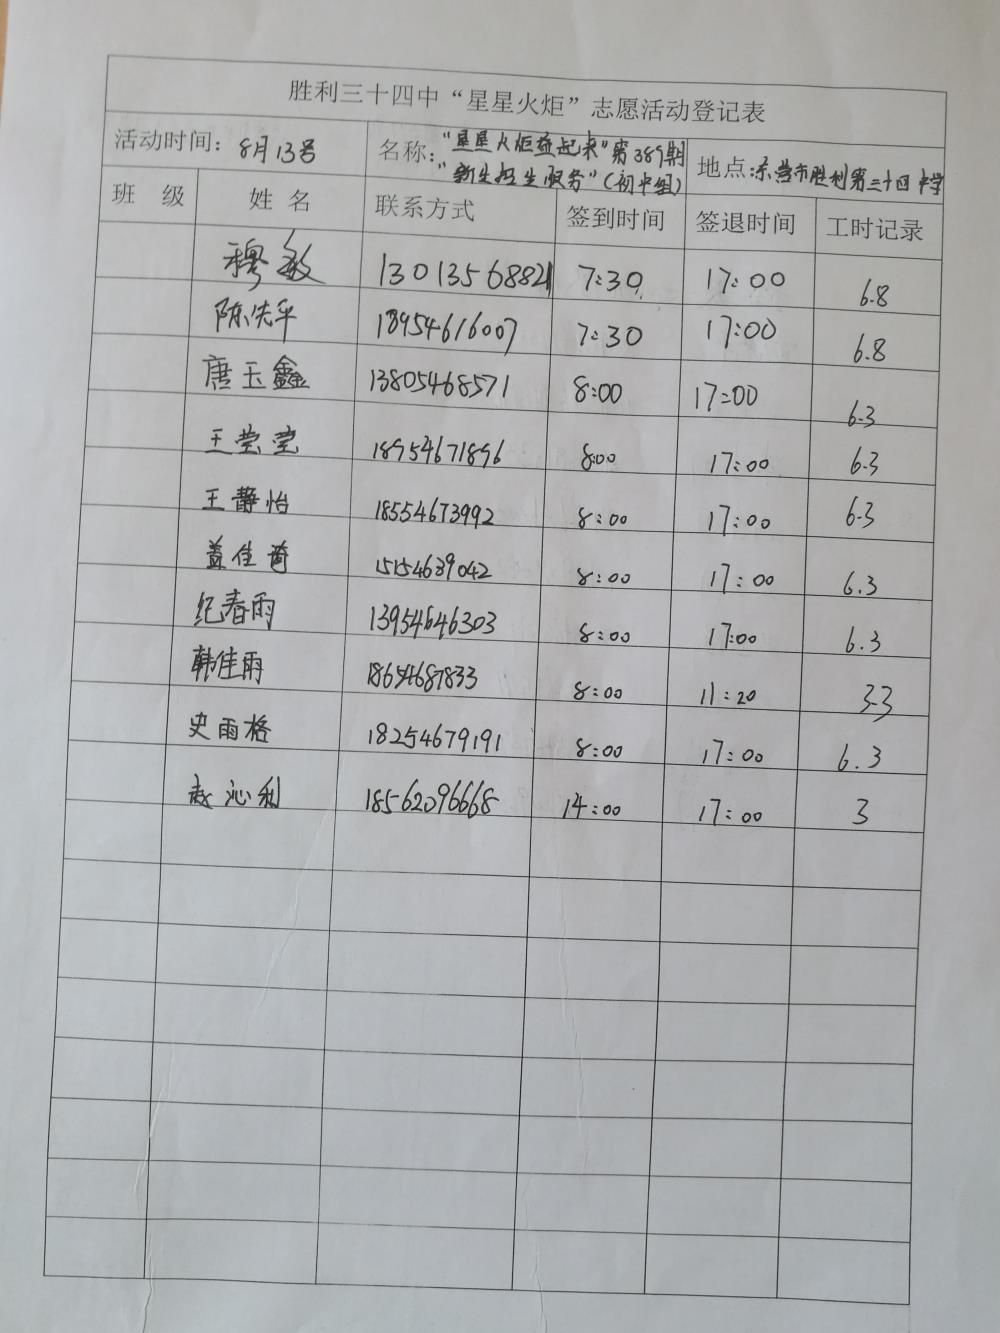 胜利三十四中“星星火炬”志愿活动登记表
活动时间：8月13号 名称：“星星火炬益起来”第389期“新生招生服务”（初中组） 地点：东营市胜利第三十四中学
班 级 姓 名 联系方式 签到时间 签退时间 工时记录
穆敏 13013568821 7:30 17:00 6.8
陈先平 18954616007 7:30 17:00 6.8
唐玉鑫 13805468571 8:00 17:00 6.3
王莹莹 18954671896 8:00 17:00 6.3
王静怡 18554673992 8:00 17:00 6.3
盖佳琦 15154639042 8:00 17:00 6.3
纪春雨 13954646303 8:00 17:00 6.3
韩佳雨 18654687833 8:00 11:20 3.3
史雨格 18254679191 8:00 17:00 6.3
赵沁利 18562096668 14:00 17:00 3